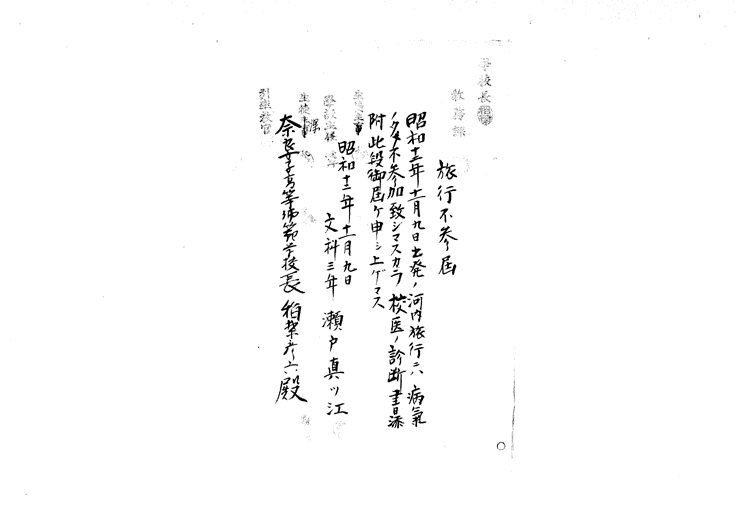 學校長
教務課
旅行不参届
昭和十二年十一月九日出発ノ河内旅行ニハ病氣
ノタメ不参加致シマスカラ校医ノ診断書添
附此段御届ケ申シ上ゲマス
昭和十二年十一月九日
文科三年 瀬戸真ツ江
奈良女子高等師範学校長 稲葉彦六殿